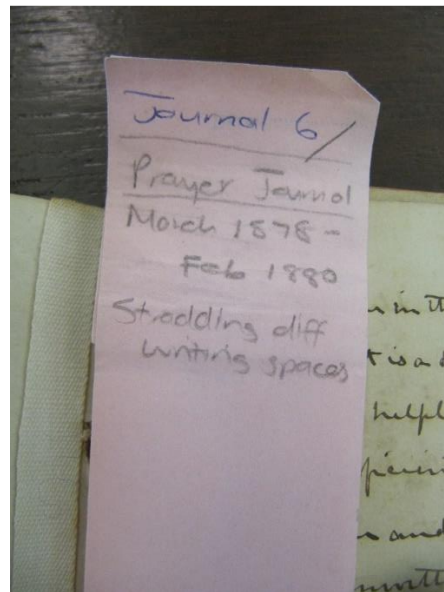 Journal 6/
Prayer Journal
March 1878 -
Feb 1880
Straddling diff
writing spaces
helpf
and